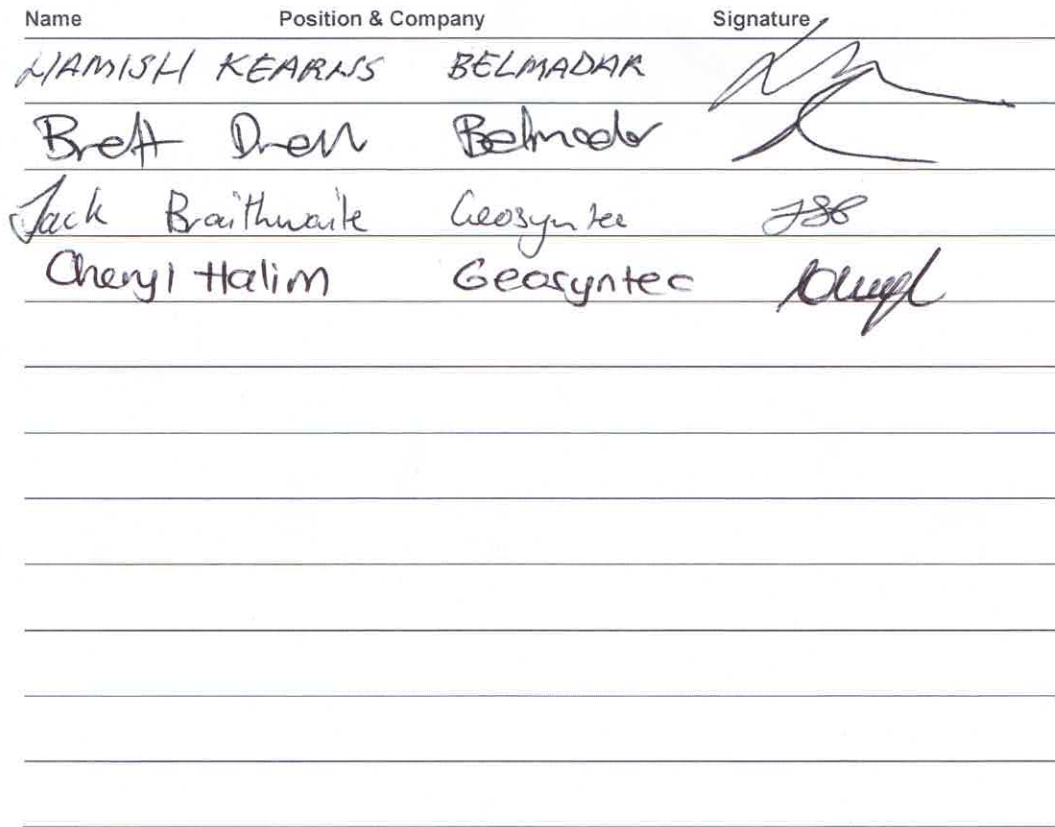 Name Position & Company Signature
HAMISH KEARNS BELMADAR
Brett Belmadar
Jack Braithwaite Geosyntec JSB
Cheryl Halim Geosyntec Cheryl